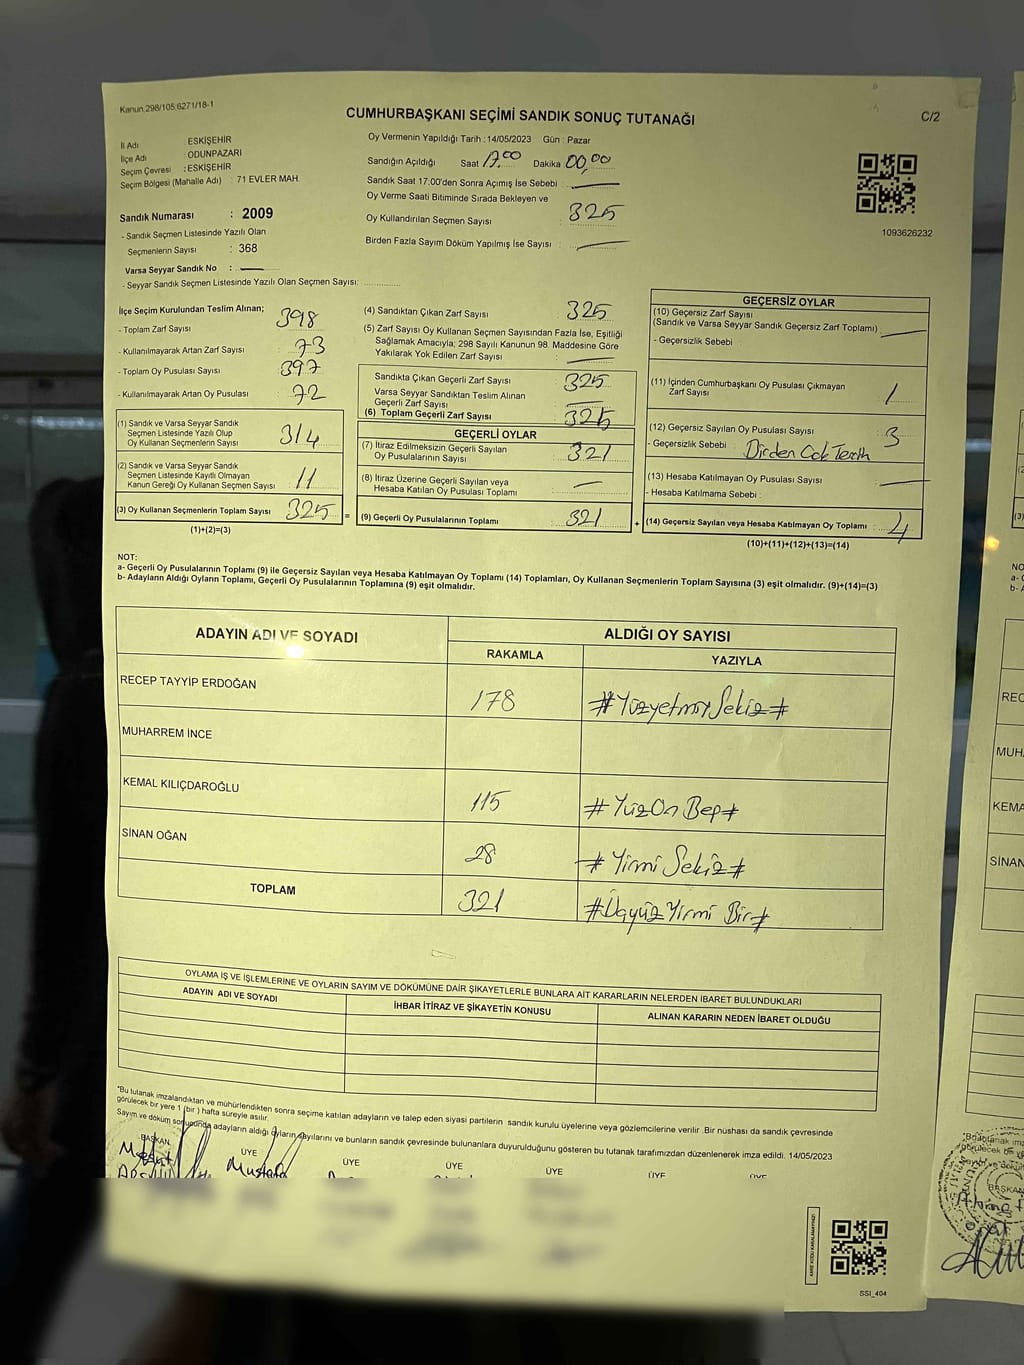 Kanun.298/105;6271/18-1
CUMHURBAŞKANI SEÇİMİ SANDIK SONUÇ TUTANAĞI
C/2
İl Adı : ESKİŞEHİR
İlçe Adı : ODUNPAZARI
Seçim Çevresi : ESKİŞEHİR
Seçim Bölgesi (Mahalle Adı) : 71 EVLER MAH.
Sandık Numarası : 2009
- Sandık Seçmen Listesinde Yazılı Olan
Seçmenlerin Sayısı : 368
Varsa Seyyar Sandık No :
- Seyyar Sandık Seçmen Listesinde Yazılı Olan Seçmen Sayısı:
Oy Vermenin Yapıldığı Tarih : 14/05/2023 Gün : Pazar
Sandığın Açıldığı Saat 17.00 Dakika 00,00
Sandık Saat 17:00'den Sonra Açımış İse Sebebi :
Oy Verme Saati Bitiminde Sırada Bekleyen ve
Oy Kullandırılan Seçmen Sayısı : 325
Birden Fazla Sayım Döküm Yapılmış İse Sayısı :
1093626232
İlçe Seçim Kurulundan Teslim Alınan;
- Toplam Zarf Sayısı : 398
- Kullanılmayarak Artan Zarf Sayısı : 73
- Toplam Oy Pusulası Sayısı : 397
- Kullanılmayarak Artan Oy Pusulası : 72
(1) Sandık ve Varsa Seyyar Sandık
Seçmen Listesinde Yazılı Olup
Oy Kullanan Seçmenlerin Sayısı : 314
(2) Sandık ve Varsa Seyyar Sandık
Seçmen Listesinde Kayıtlı Olmayan
Kanun Gereği Oy Kullanan Seçmen Sayısı : 11
(3) Oy Kullanan Seçmenlerin Toplam Sayısı : 325
(1)+(2)=(3)
=
(4) Sandıktan Çıkan Zarf Sayısı : 325
(5) Zarf Sayısı Oy Kullanan Seçmen Sayısından Fazla İse, Eşitliği
Sağlamak Amacıyla; 298 Sayılı Kanunun 98. Maddesine Göre
Yakılarak Yok Edilen Zarf Sayısı :
Sandıkta Çıkan Geçerli Zarf Sayısı : 325
Varsa Seyyar Sandıktan Teslim Alınan
Geçerli Zarf Sayısı :
(6) Toplam Geçerli Zarf Sayısı : 325
GEÇERLİ OYLAR
(7) İtiraz Edilmeksizin Geçerli Sayılan
Oy Pusulalarının Sayısı : 321
(8) İtiraz Üzerine Geçerli Sayılan veya
Hesaba Katılan Oy Pusulası Toplamı :
(9) Geçerli Oy Pusulalarının Toplamı : 321
+
GEÇERSİZ OYLAR
(10) Geçersiz Zarf Sayısı
(Sandık ve Varsa Seyyar Sandık Geçersiz Zarf Toplamı) :
- Geçersizlik Sebebi :
(11) İçinden Cumhurbaşkanı Oy Pusulası Çıkmayan
Zarf Sayısı : 1
(12) Geçersiz Sayılan Oy Pusulası Sayısı : 3
- Geçersizlik Sebebi :
(13) Hesaba Katılmayan Oy Pusulası Sayısı :
- Hesaba Katılmama Sebebi :
(14) Geçersiz Sayılan veya Hesaba Katılmayan Oy Toplamı : 4
(10)+(11)+(12)+(13)=(14)
NOT:
a- Geçerli Oy Pusulalarının Toplamı (9) ile Geçersiz Sayılan veya Hesaba Katılmayan Oy Toplamı (14) Toplamları, Oy Kullanan Seçmenlerin Toplam Sayısına (3) eşit olmalıdır. (9)+(14)=(3)
b- Adayların Aldığı Oyların Toplamı, Geçerli Oy Pusulalarının Toplamına (9) eşit olmalıdır.
ADAYIN ADI VE SOYADI
ALDIĞI OY SAYISI
RAKAMLA YAZIYLA
RECEP TAYYİP ERDOĞAN 178 #YüzyetmişSekiz#
MUHARREM İNCE
KEMAL KILIÇDAROĞLU 115 #YüzOn Beş#
SİNAN OĞAN 28 #Yirmi Sekiz#
TOPLAM 321 #Üçyüz Yirmi Bir#
OYLAMA İŞ VE İŞLEMLERİNE VE OYLARIN SAYIM VE DÖKÜMÜNE DAİR ŞİKAYETLERLE BUNLARA AİT KARARLARIN NELERDEN İBARET BULUNDUKLARI
ADAYIN ADI VE SOYADI
İHBAR İTİRAZ VE ŞİKAYETİN KONUSU
ALINAN KARARIN NEDEN İBARET OLDUĞU
"Bu tutanak imzalandıktan ve mühürlendikten sonra seçime katılan adayların ve talep eden siyasi partilerin sandık kurulu üyelerine veya gözlemcilerine verilir .Bir nüshası da sandık çevresinde
görülecek bir yere 1 (bir ) hafta süreyle asılır.
Sayım ve döküm sonucunda adayların aldığı oyların sayılarını ve bunların sandık çevresinde bulunanlara duyurulduğunu gösteren bu tutanak tarafımızdan düzenlenerek imza edildi. 14/05/2023
BAŞKAN ÜYE ÜYE ÜYE ÜYE ÜYE ÜYE
Mustafa
SSI_404